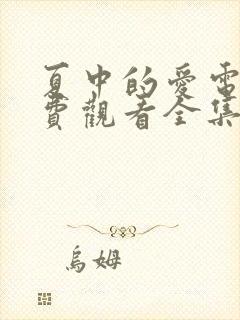 夏中的愛電
費觀看全集
烏姆